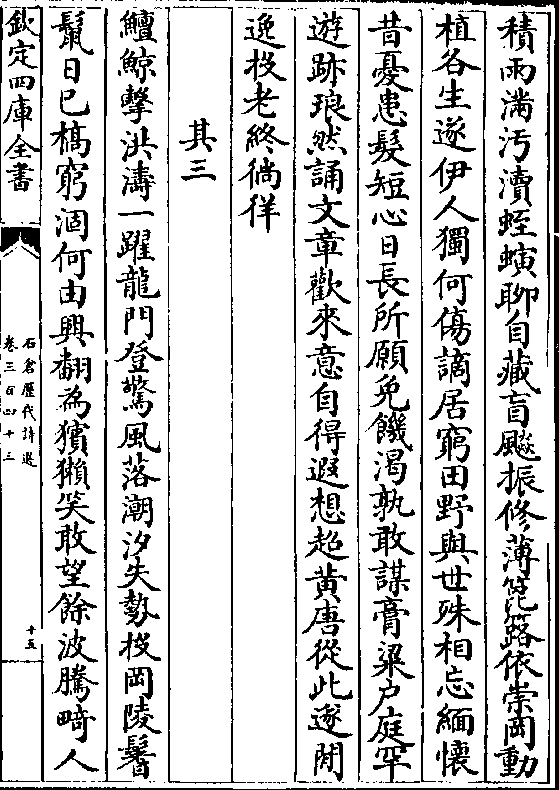 積雨滿汚瀆蛭螾聊自藏盲飈振修薄箟簬依崇岡動
植各生遂伊人獨何傷謫居窮田野與世殊相忘緬懷
昔憂患髮短心日長所願免饑渴孰敢謀膏粱户庭罕
遊跡琅然誦文章歡來意自得遐想超黄唐從此遂閒
逸投老終徜徉
其三
鱣鯨擊洪濤一躍龍門登驚風落潮汐失勢投岡陵鬐
鬛日已槁窮涸何由興翻為獱獺笑敢望餘波騰畸人
欽定四庫全書
石倉歷代詩選
卷三百四十三
十五